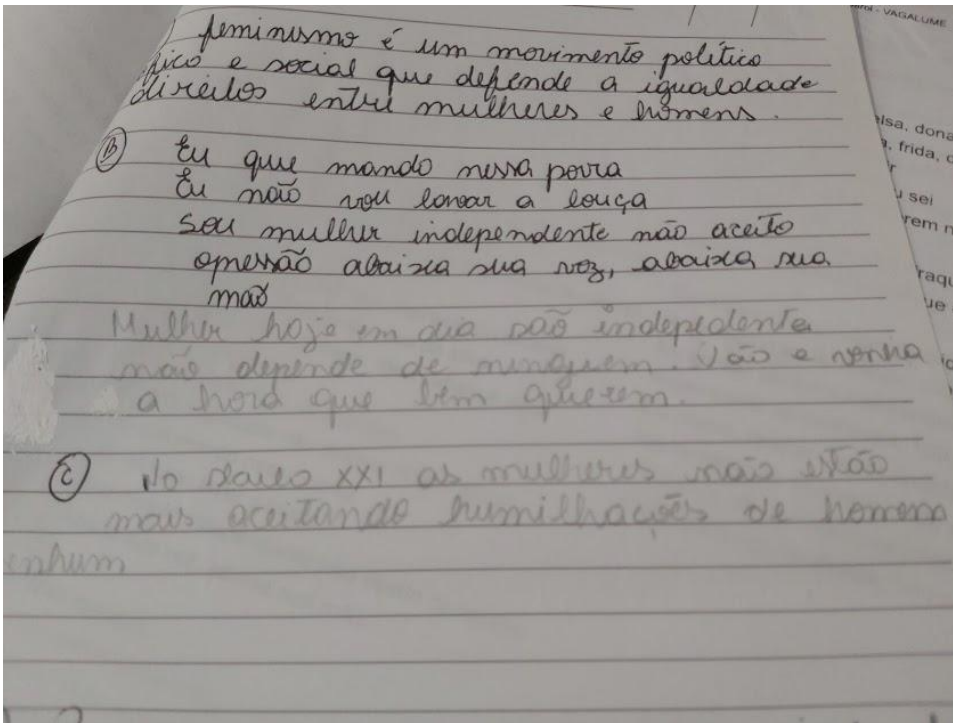 feminismo é um movimento político
dico e social que defende a igualdade
direitos entre mulheres e homens.
B Eu que mando nessa porra
Eu não vou lavar a louça
Sou mulher independente não aceito
opressão abaixa sua voz, abaixa sua
mão
Mulher hoje em dia são indepedente
não depende de ninguem. Vão e venha
a hora que bem querem.
C No século XXI as mulheres não estão
mais aceitando humilhações de homem
nhum
VAGALUME
elsa, dona
frida,
sei
rem